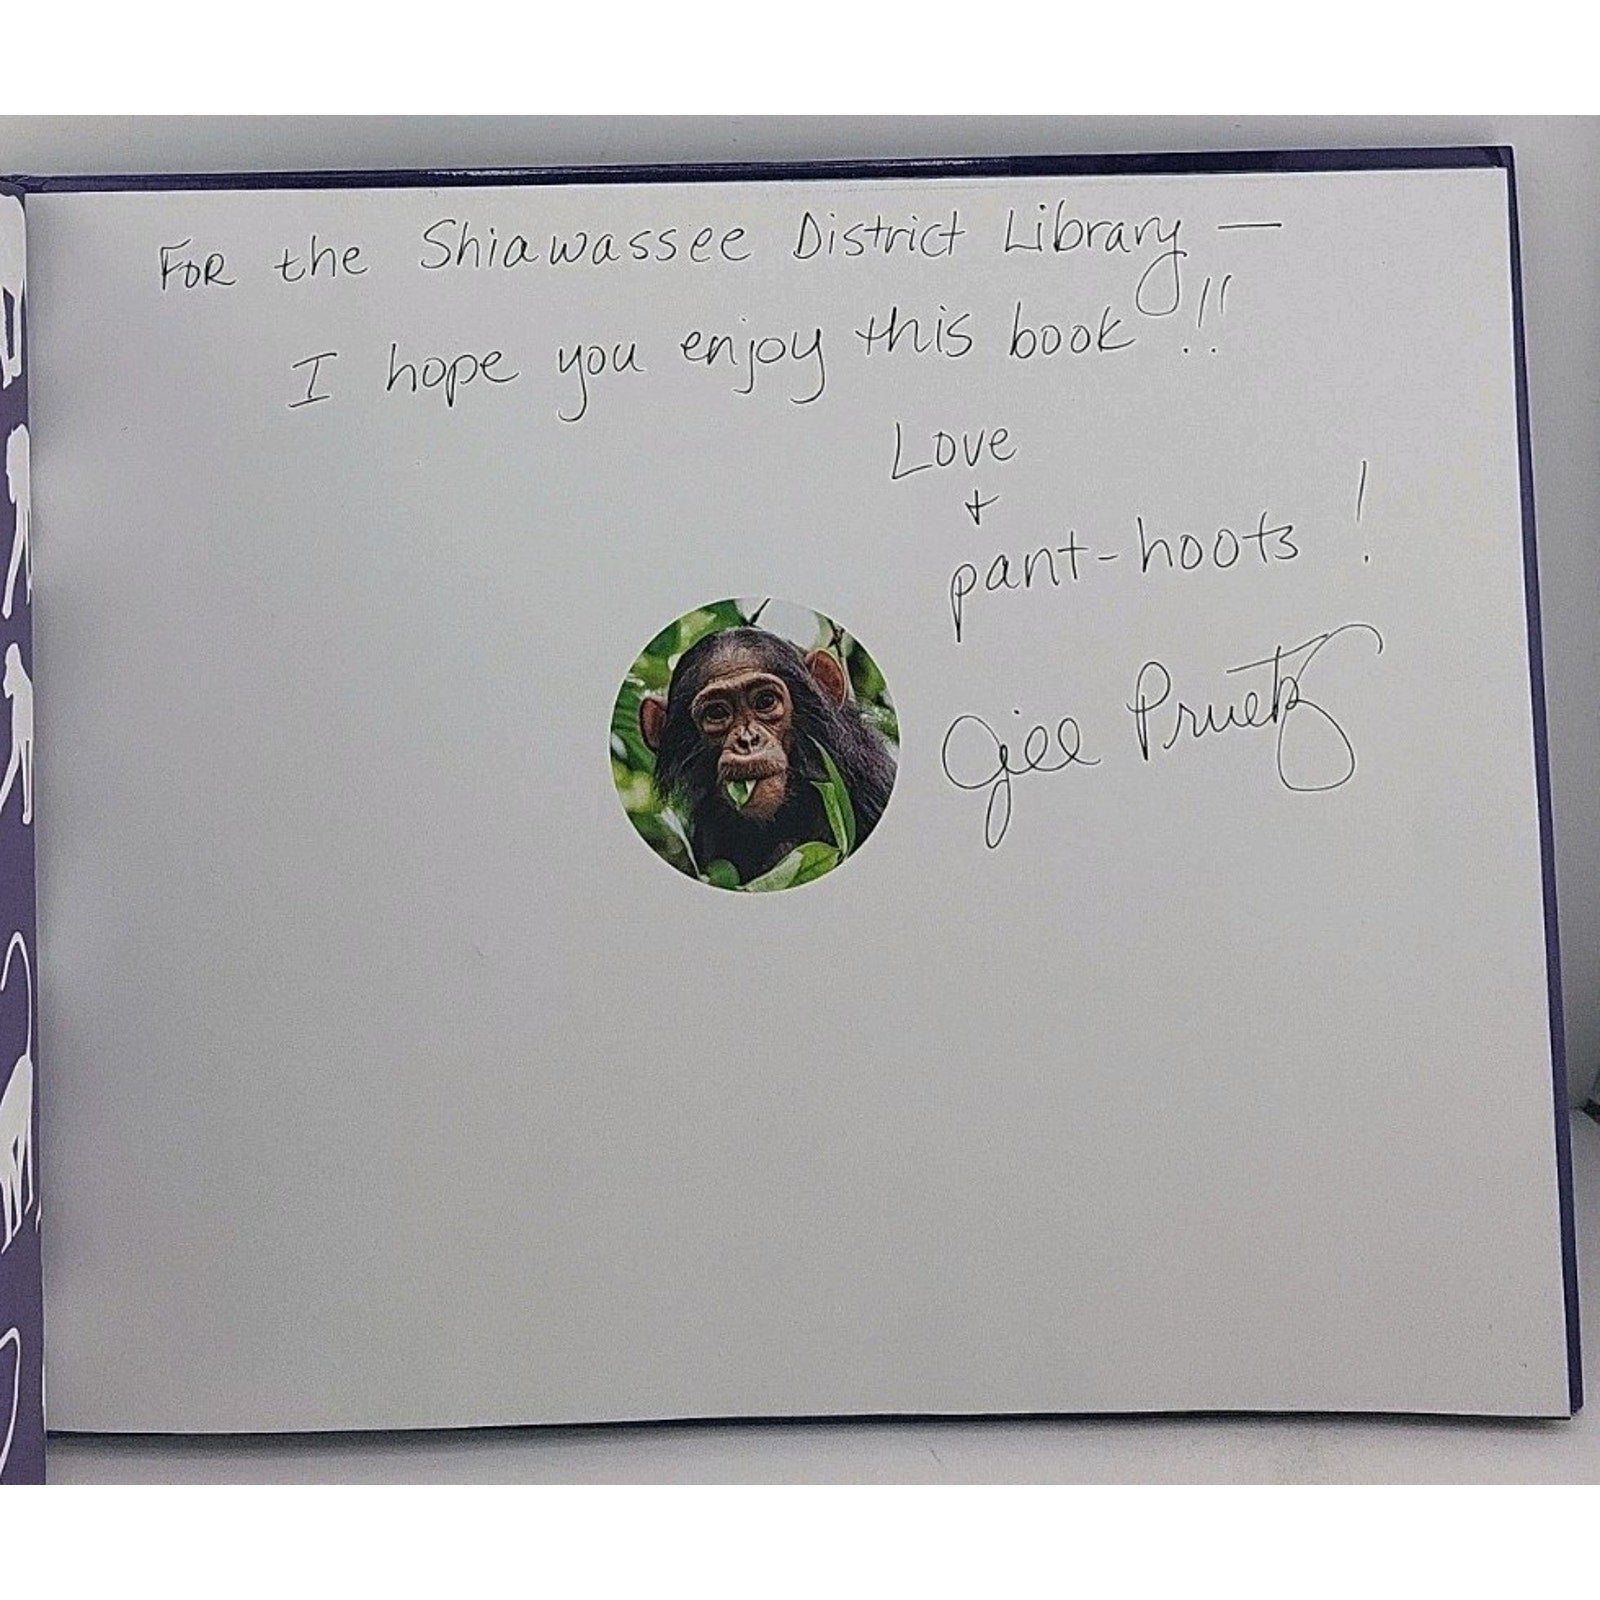 For the Shiawassee District Library —
I hope you enjoy this book!!
Love
+
pant-hoots!
Jill Pruetz